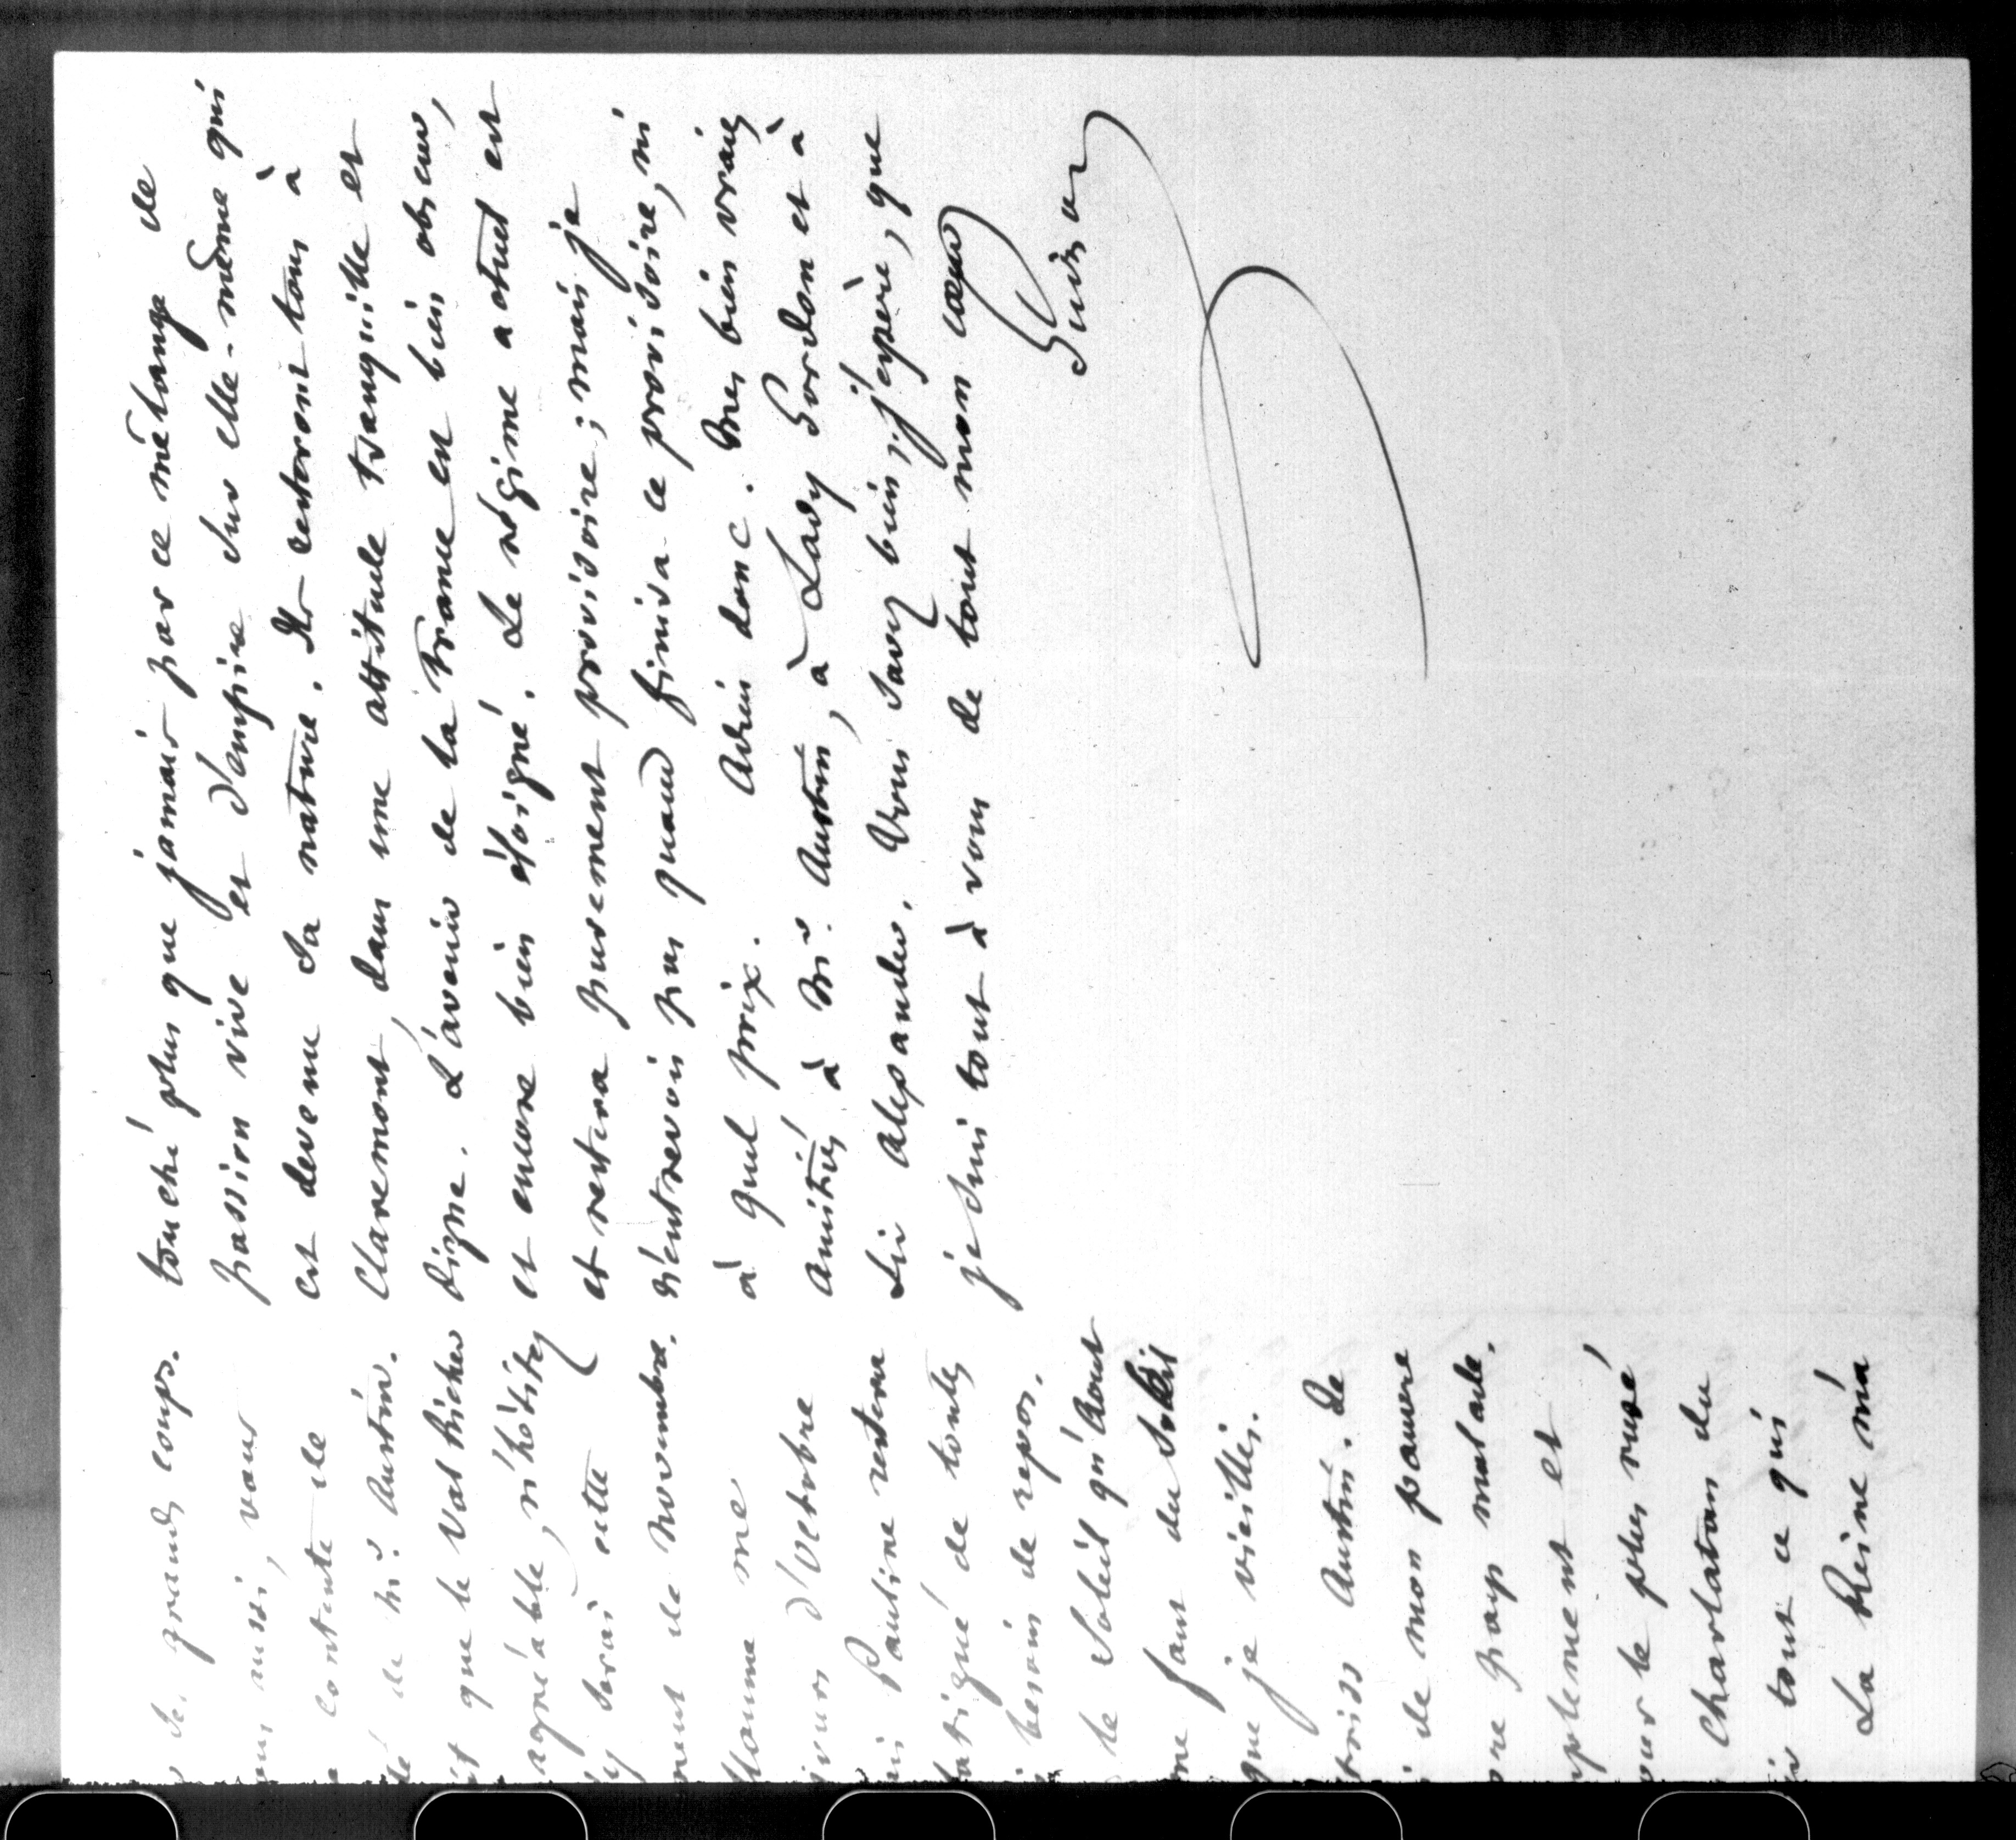 des grands coups.
aussi, vous
contente de
de Mr. Austin.
que le Val Richer
agréable, n'hésitez
serai cette
ment de Novembre.
donne me
jours d'Octobre
Pauline restera
fatigué de toutes
besoin de repos.
le Soleil qu'Aout
me faut du Soleil
que je vieillis.
Austin. De
de mon pauvre
trop malade.
plement et
our le plus rusé
Charlatan du
tout ce qui
La Reine m'a
touché plus que jamais par ce mélange de
passion vive et d'empire sur elle-même qui
est devenu sa nature. Ils resteront tous à
Claremont, dans une attitude tranquille et
digne. L'avenir de la France est bien obscur,
et encore bien éloigné. Le régime actuel est
et restera purement provisoire ; mais je
n'entrevois pas quand finira ce provisoire, ni
à quel prix. Adieu donc. Mes bien vraies
amitiés à Mr. Austin, à Lady Gordon et à
Sir Alexander. Vous savez bien, j'espère, que
je suis tout à vous de tout mon cœur
Guizot